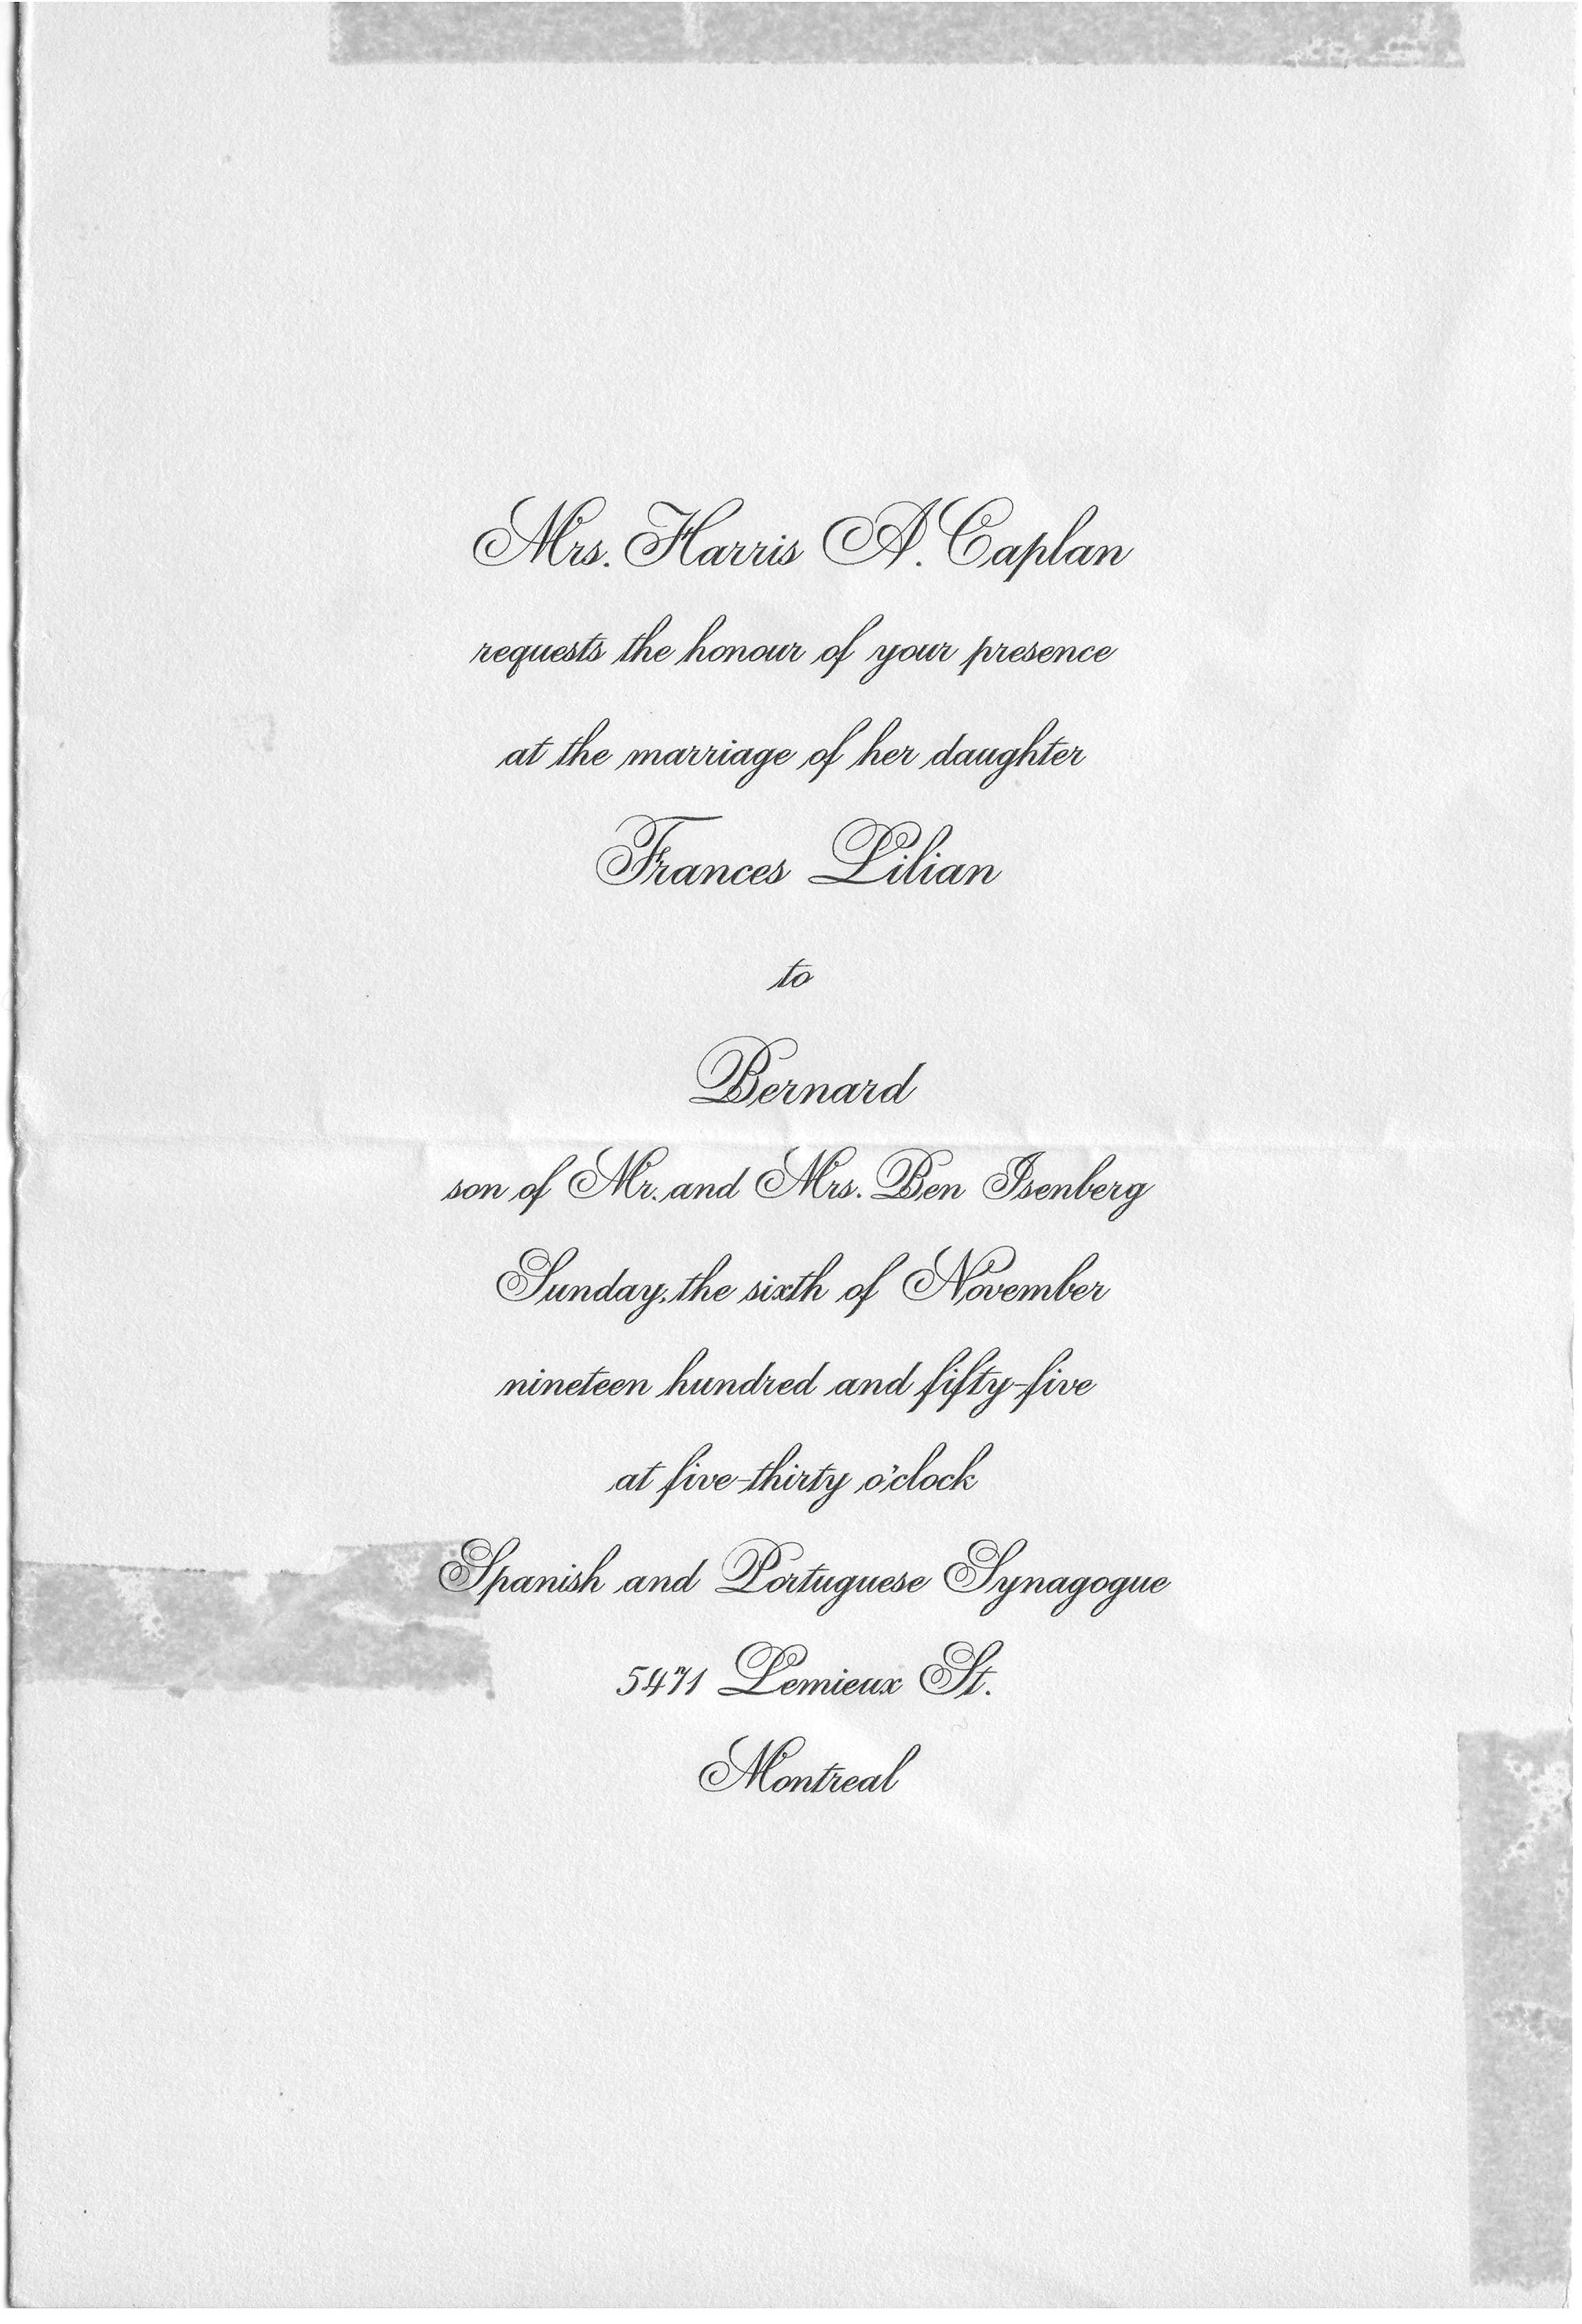 Mrs. Harris A. Caplan
requests the honour of your presence
at the marriage of her daughter
Frances Lilian
to
Bernard
son of Mr. and Mrs. Ben Isenberg
Sunday, the sixth of November
nineteen hundred and fifty-five
at five-thirty o'clock
Spanish and Portuguese Synagogue
5471 Lemieux St.
Montreal